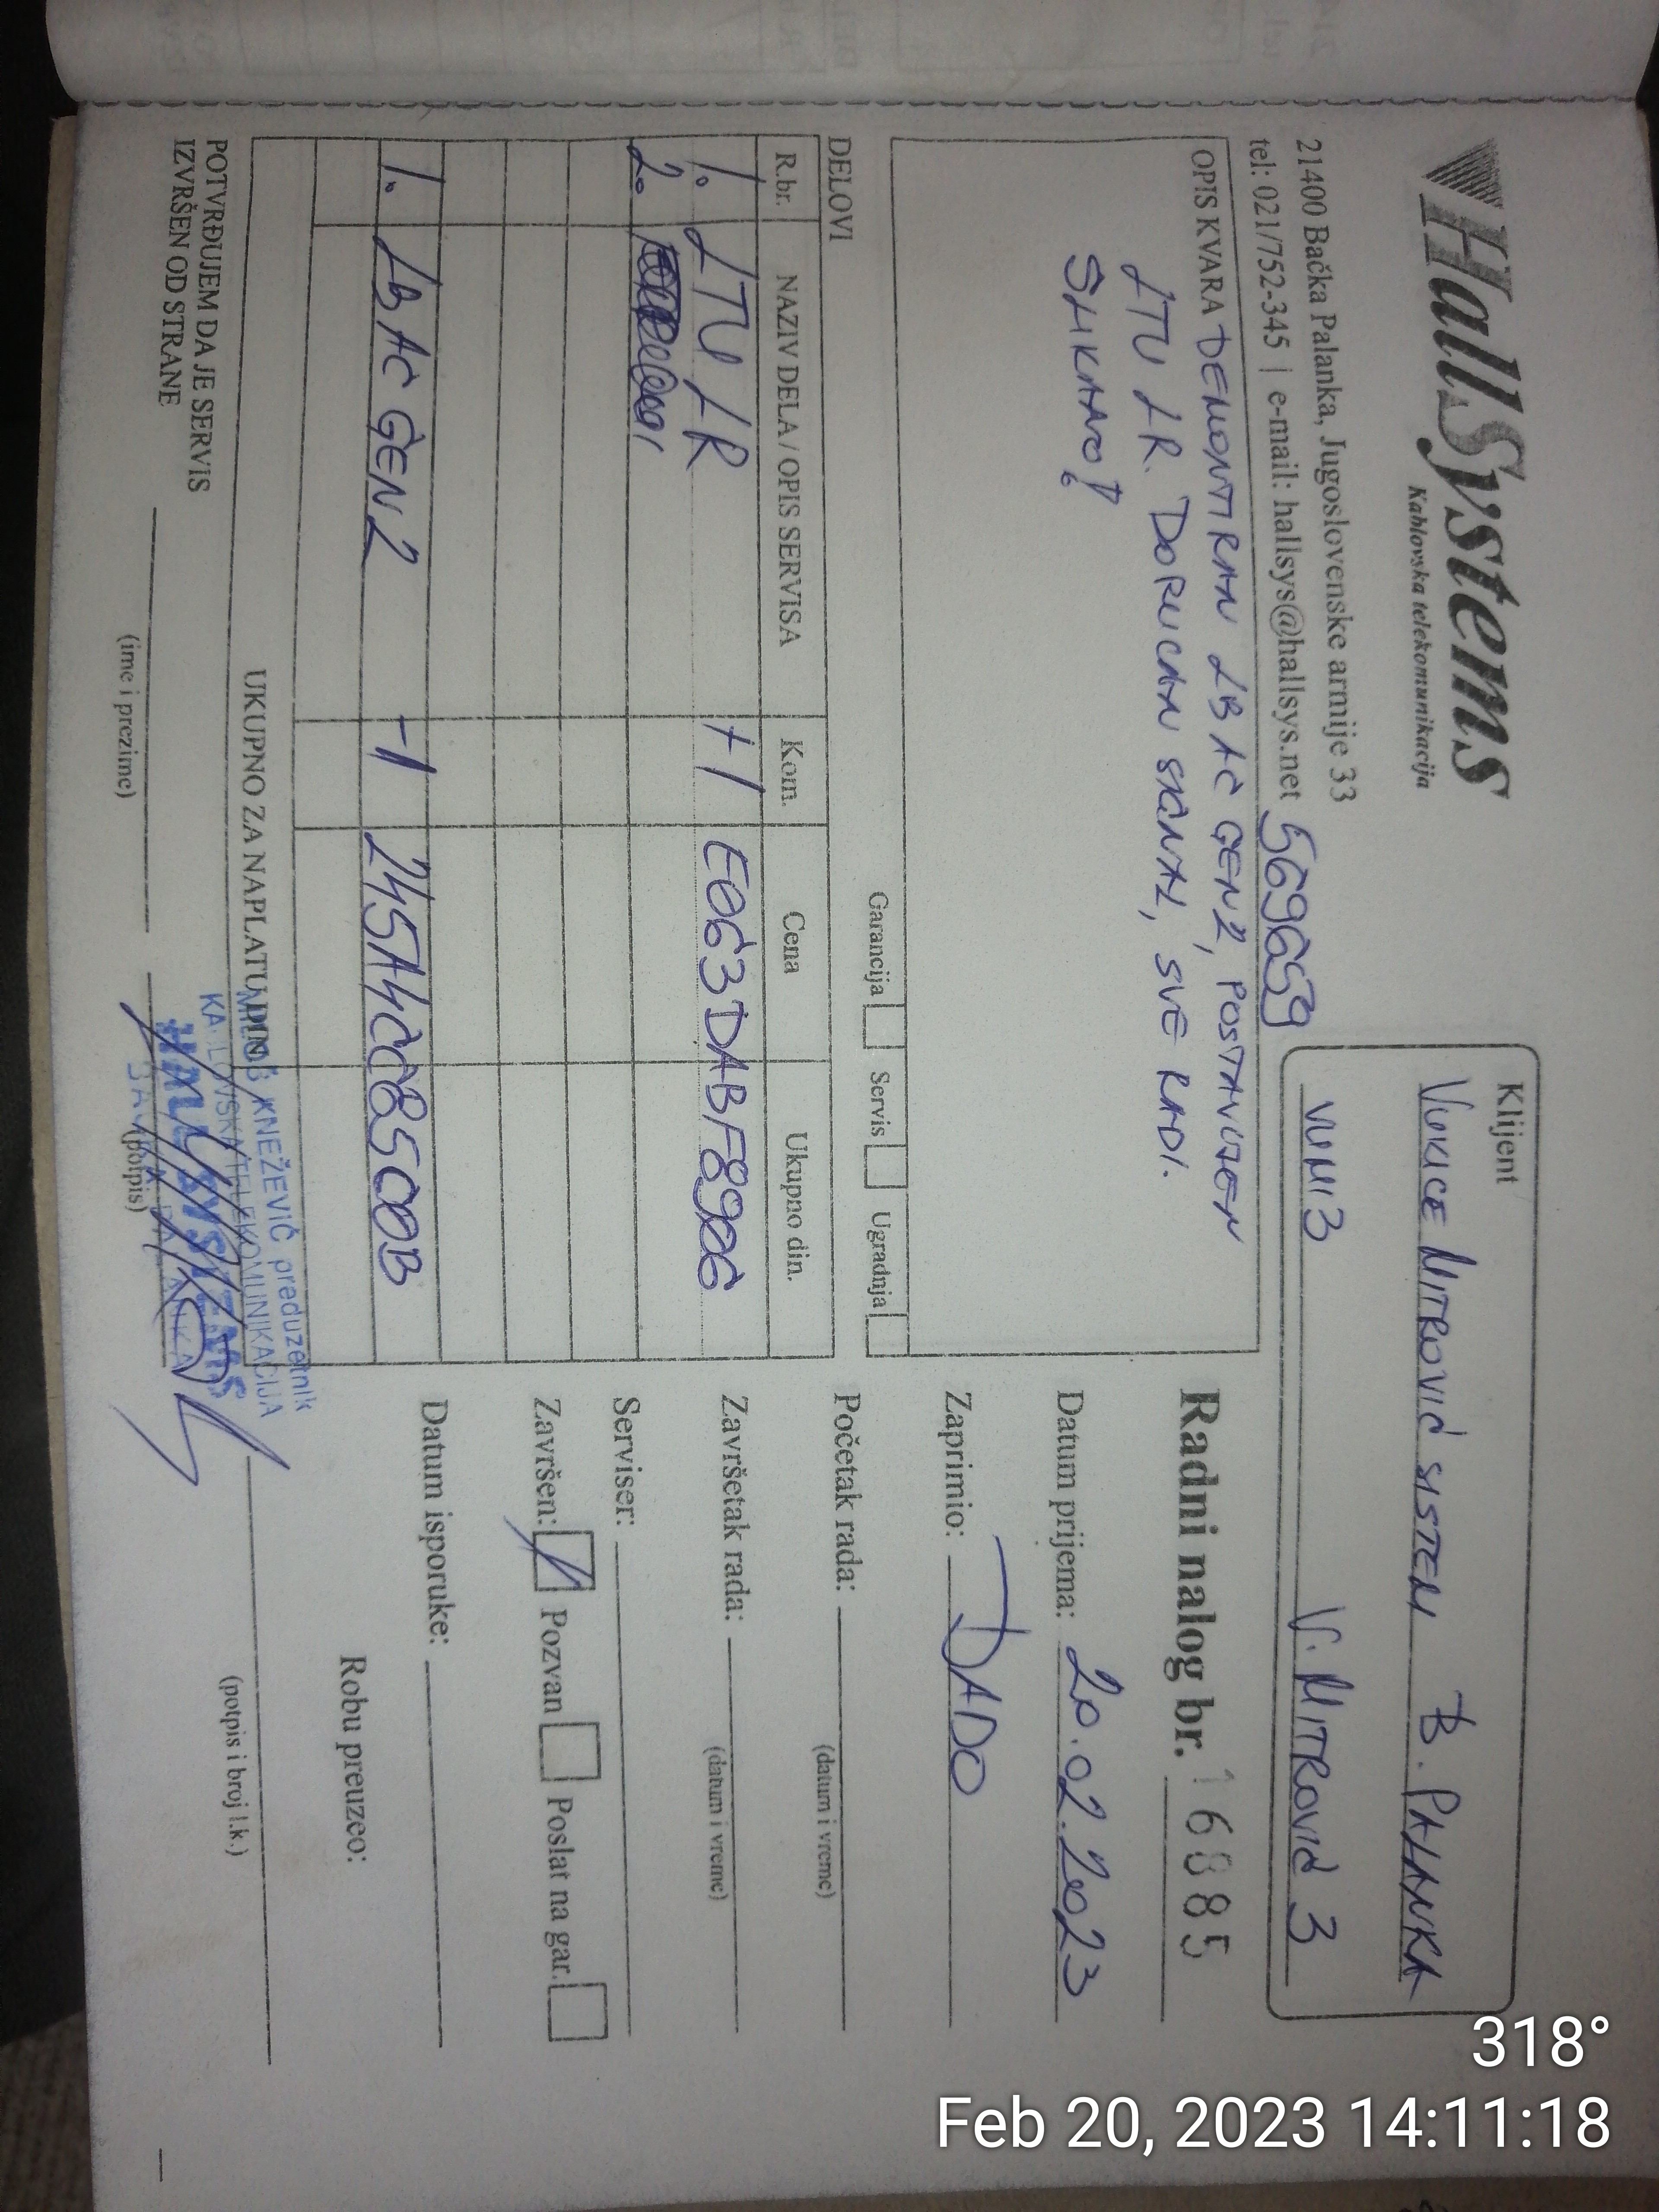 HallSystems
Kablovska telekomunikacija
21400 Bačka Palanka, Jugoslovenske armije 33
tel: 021/752-345 | e-mail: hallsys@hallsys.net
569659
Klijent
VUKICE MITROVIĆ SISTEM B. PALANKA
VUMI3 V. MITROVIĆ 3
OPIS KVARA DEMONTIRAN LB AC GEN2, POSTAVLJEN
LTU LR. DORUCAN SIGNAL, SVE RADI.
SLIKANO!
Garancija Servis Ugradnja
Radni nalog br. 16085
Datum prijema: 20.02.2023
Zaprimio: DADO
Početak rada:
(datum i vreme)
Završetak rada:
(datum i vreme)
Serviser:
Završen: Pozvan Poslat na gar.
Datum isporuke:
Robu preuzeo:
(potpis i broj l.k.)
DELOVI
R.br. NAZIV DELA / OPIS SERVISA Kom. Cena Ukupno din.
1. LTU LR +1 E063DABF8906
2.
1. LB AC GEN2 -1 245A4C85C00B
UKUPNO ZA NAPLATU DIN
POTVRĐUJEM DA JE SERVIS
IZVRŠEN OD STRANE
(ime i prezime) (potpis)
KNEŽEVIĆ preduzetnik
KABLOVSKA TELEKOMUNIKACIJA
HALL SYSTEMS
BAČKA PALANKA
318°
Feb 20, 2023 14:11:18